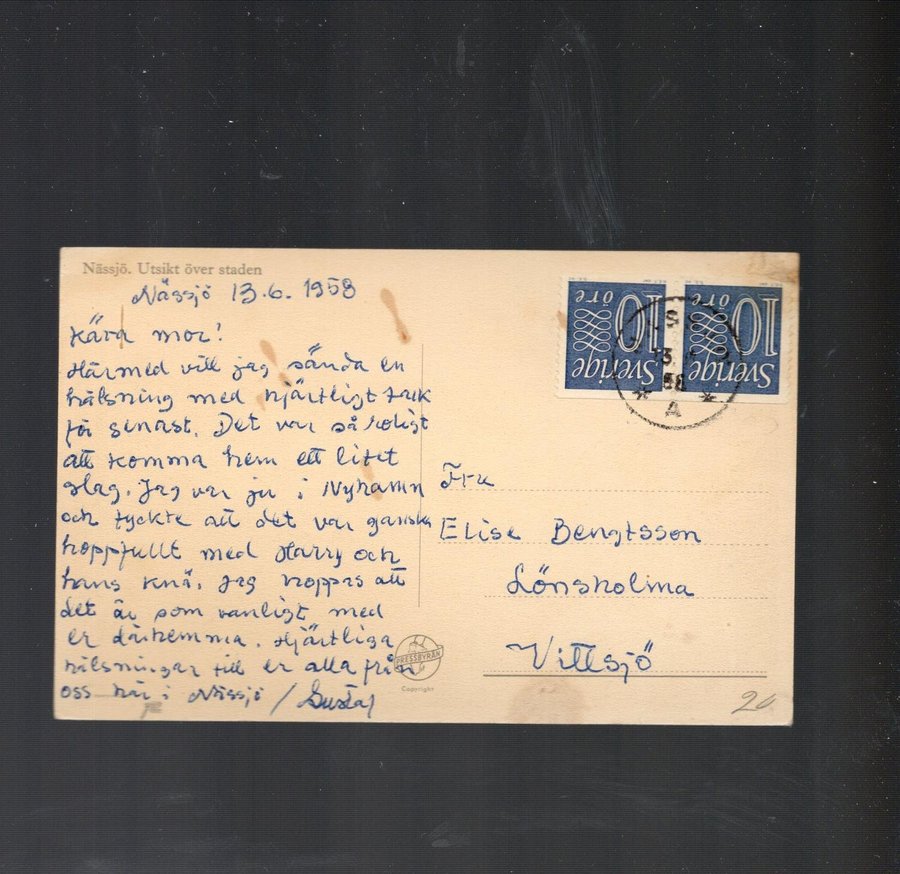 Nässjö. Utsikt över staden
Nässjö 13.6. 1958
Kära mor!
Härmed vill jag sända en
hälsning med hjärtligt tack
för senast. Det var så roligt
att komma hem ett litet
slag. Jag var ju i Nyhamn
och tyckte att det var ganska
hoppfullt med Harry och
hans knä. Jag hoppas att
det är som vanligt med
er därhemma. Hjärtliga
hälsningar till er alla från
oss här i Nässjö / Gustaf
10 öre Sverige
10 öre Sverige
58
A
Fru
Elise Bengtsson
Lönsholma
Vittsjö
PRESSBYRÅN
Copyright